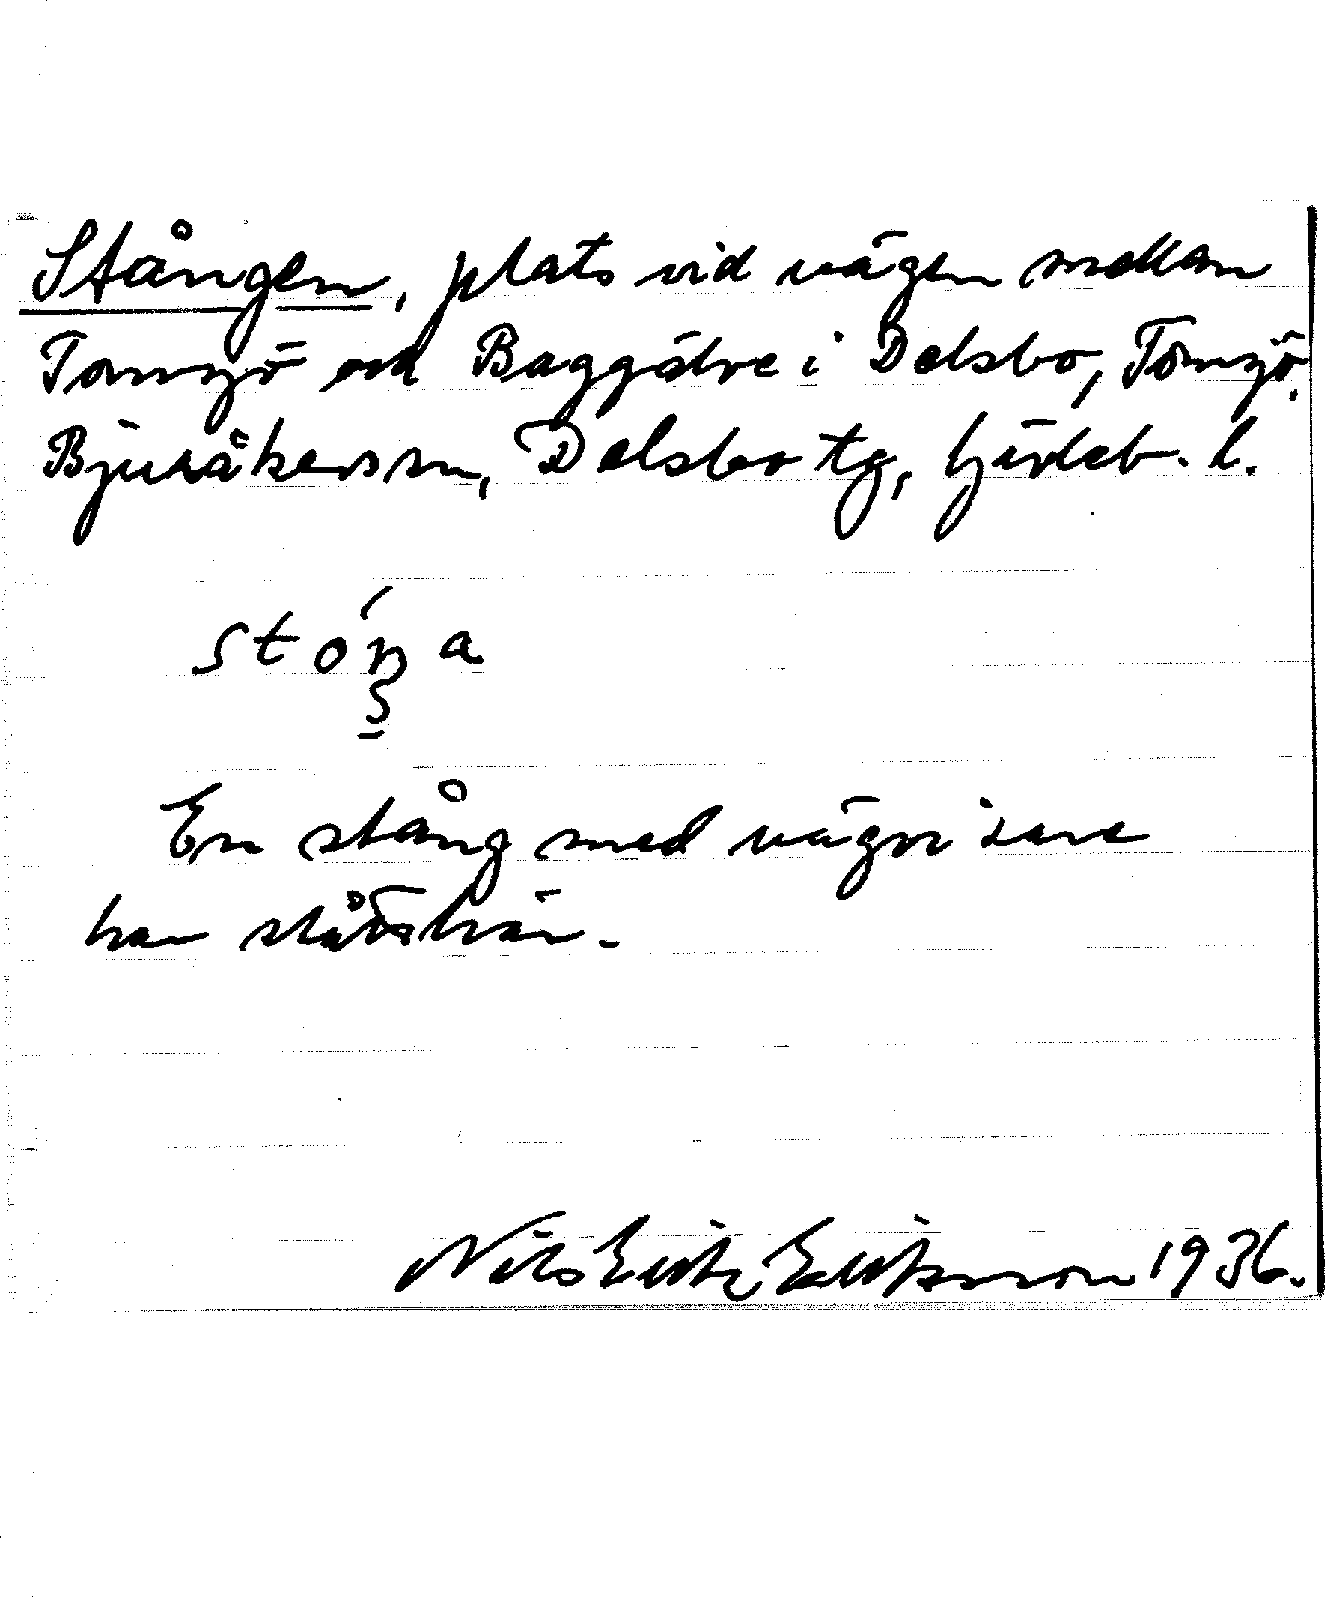 Stången, plats vid vägen mellan
Tomsjö och Baggälve i Delsbo, Tomsjö,
Bjuråkers sn, Delsbo tg, Gävleb. l.
stóŋa
En stång med vägvisare
har stått här.
Nils Erik Eriksson 1936.